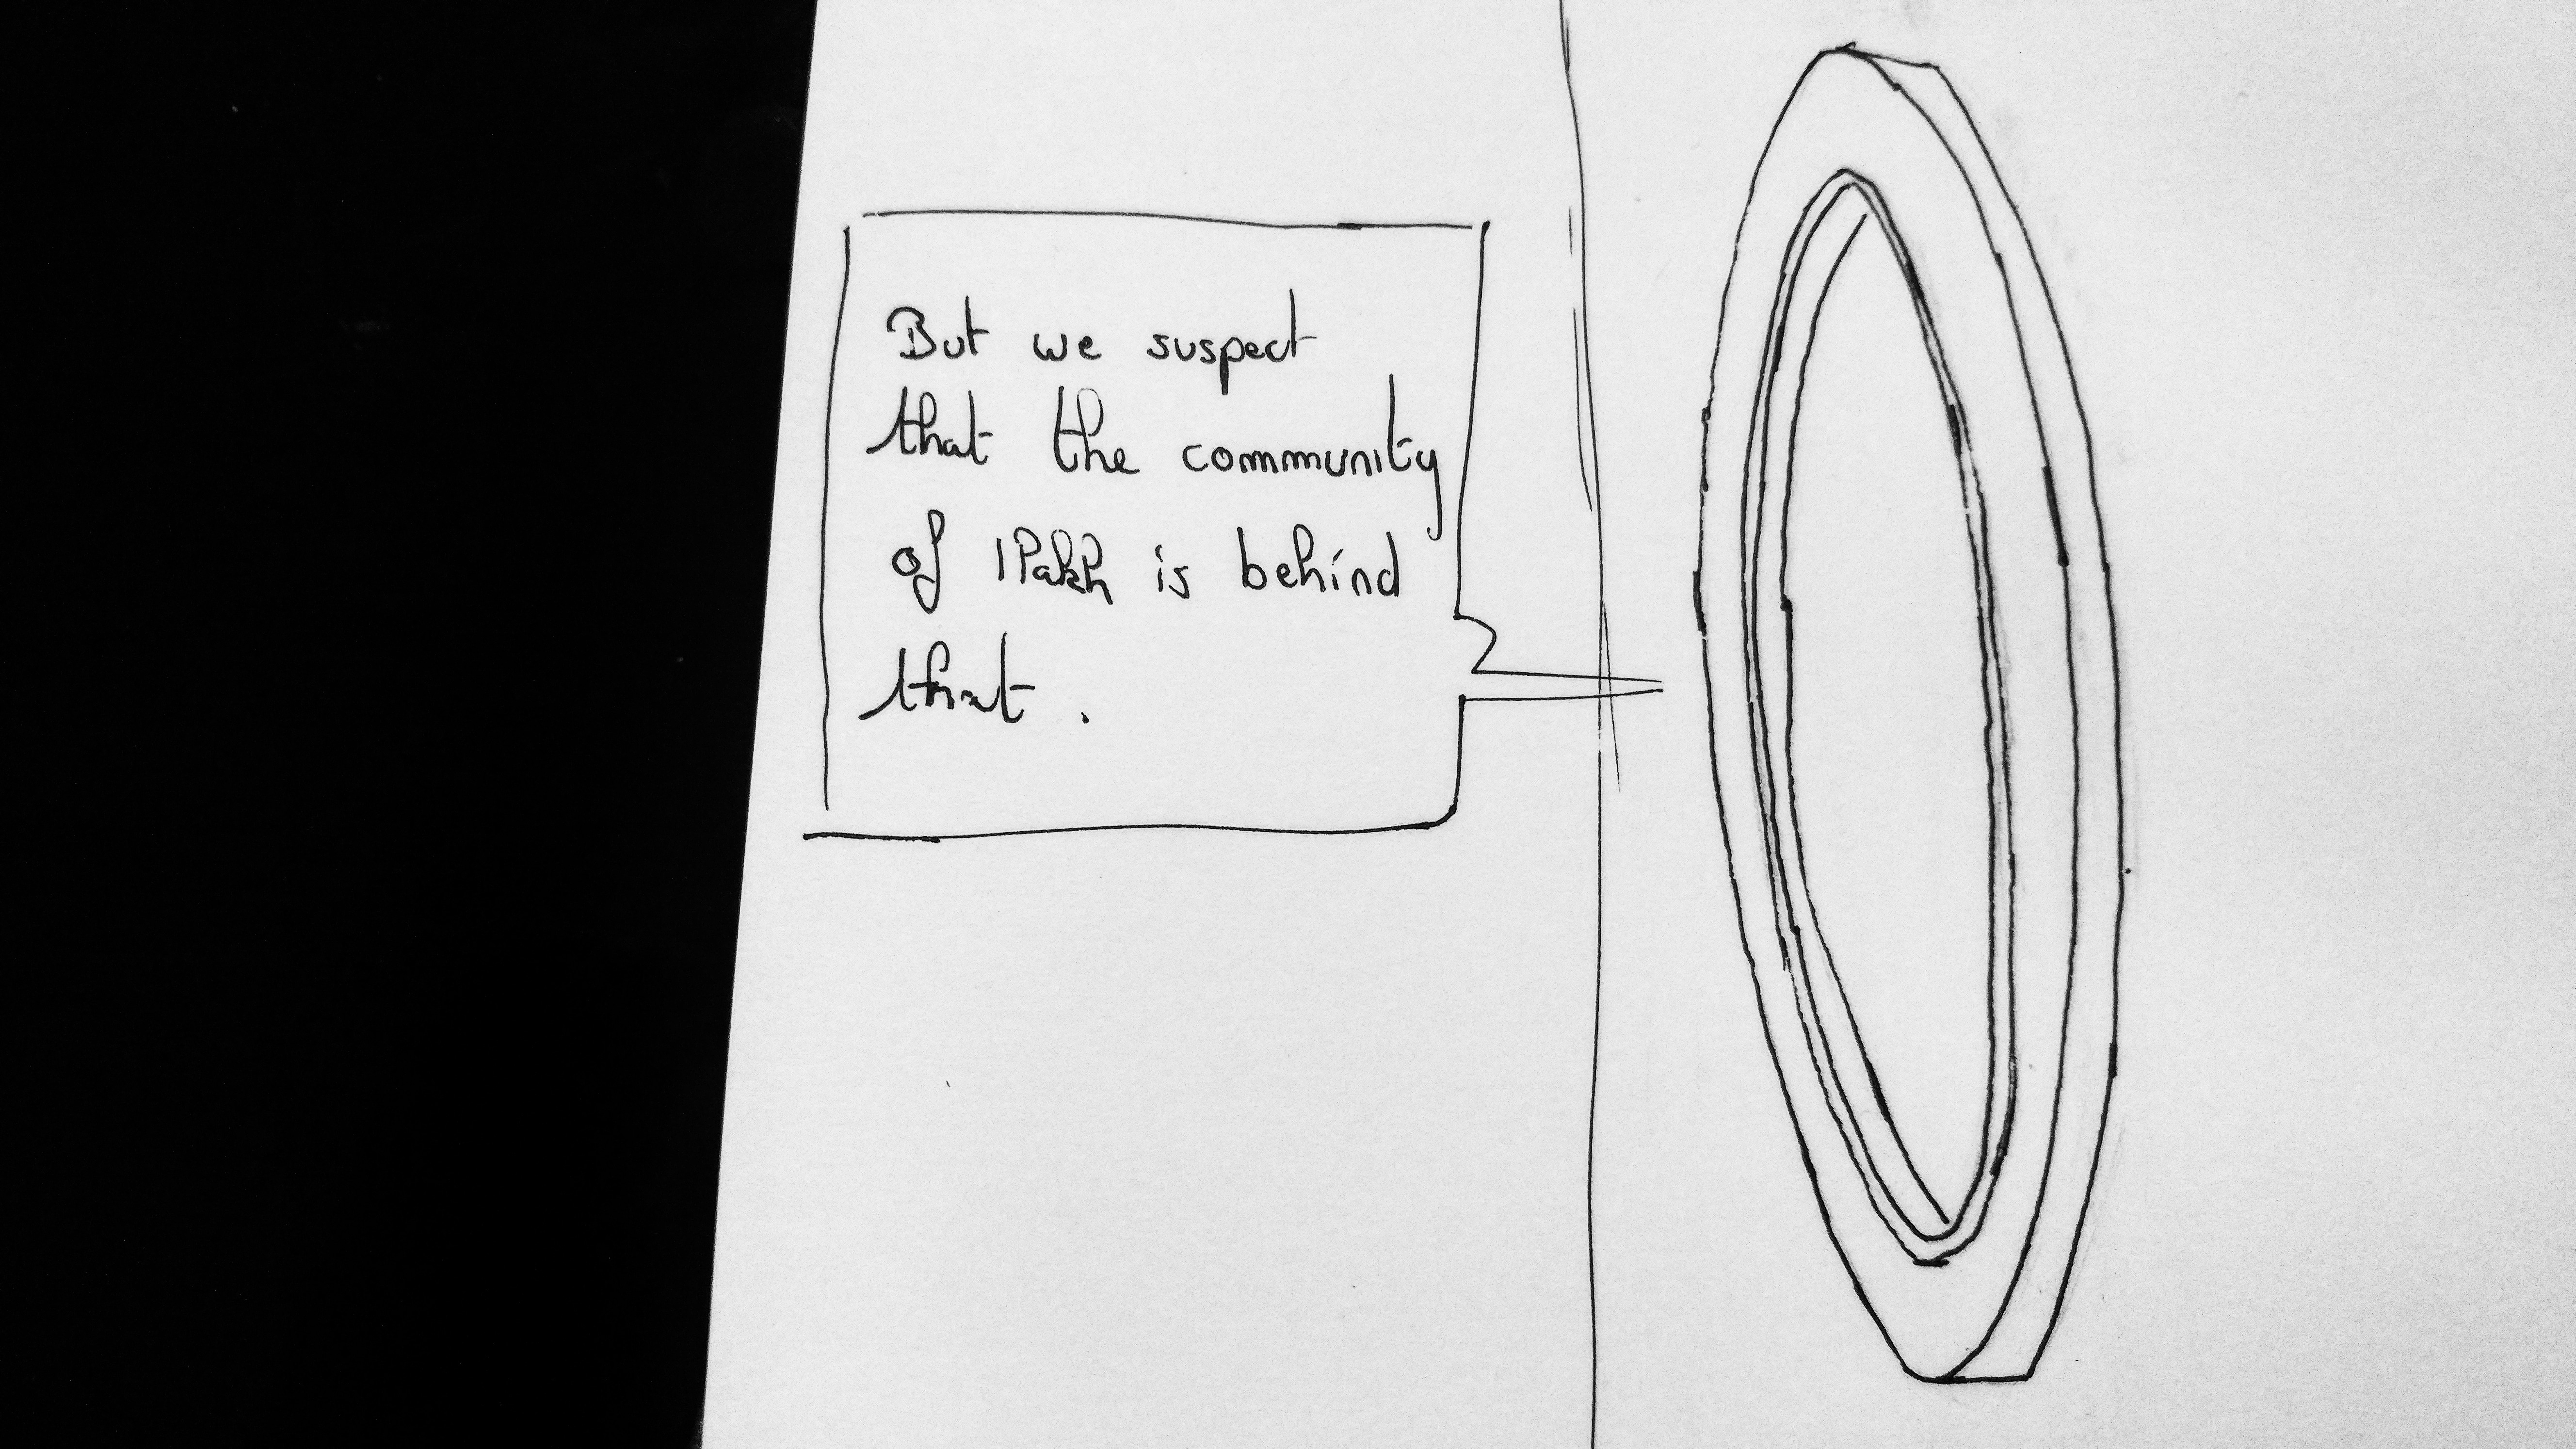 But we suspect
that the community
of is behind
that.